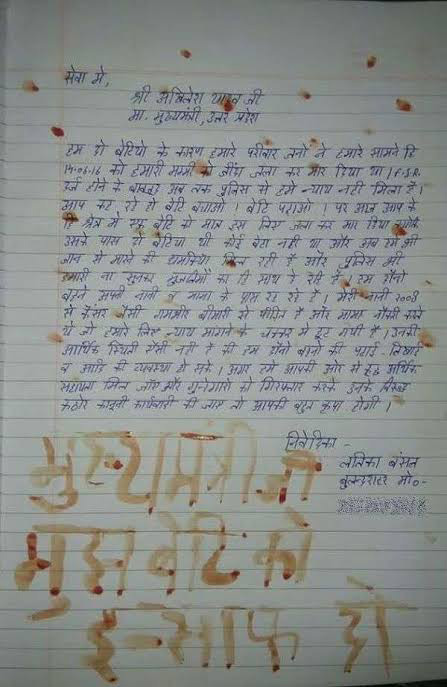 सेवा मे,
श्री अखिलेश यादव जी
मा. मुख्यमंत्री, उत्तर प्रदेश
हम दो बेटियो के कारण हमारे परिवार जनो ने हमारे सामने हि
14-06-16 को हमारी मम्मी को जिंदा जला कर मार दिया था। F.I.R
दर्ज होने के बावजूद अब तक पुलिस से हमे न्याय नही मिला है।
आप कह रहे हो बेटी बचाओ। बेटि पढाओ। पर आज आप के
हि क्षेत्र मे एक बेटि को मात्र इस लिए जला कर मार दिया क्योकि
उसके पास दो बेटिया थी कोई बेटा नही था और अब हमे भी
जान से मारने की धमकिया मिल रही है और पुलिस भी
हमारी ना सुनकर मुजरिमो का हि साथ दे रही है। हम दोनो
बहने अपनी नानी व मामा के पास रह रहे है। मेरी नानी 2003
से कैंसर जैसी गम्भीर बीमारी से पीडित है और मामा नौकरी करते
थे वो हमारे लिए न्याय मांगने के चक्कर मे छूट गयी है। उनकी
आर्थिक स्थिती ऐसी नही है की हम दोनो बहनो की पढाई लिखाई
व आदि की व्यवस्था हो सके। अगर हमे आपकी ओर से कुछ आर्थिक
सहायता मिल जाए और गुनेगारो को गिरफ्तार करके उनके विरूद्ध
कठोर कानूनी कार्यवाही की जाए तो आपकी बहुत कृपा होगी।
निवेदिका -
लतिका बंसल
बुलन्दशहर मो०-
मुख्यमंत्री जी
मुझ बेटि को
इन्साफ दो